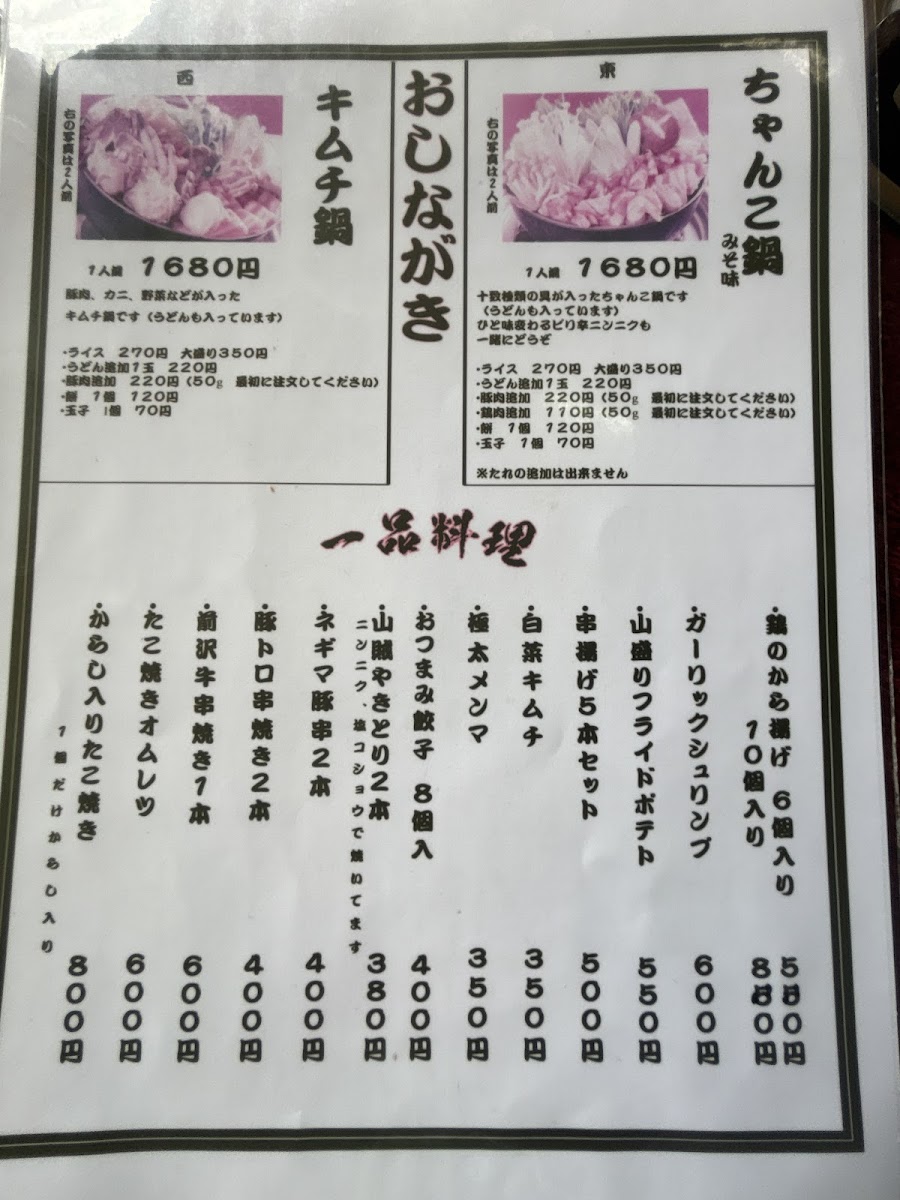 おしながき
東
ちゃんこ鍋
みそ味
右の写真は2人前
1人鍋 1680円
十数種類の具が入ったちゃんこ鍋です
（うどんも入っています）
ひと味変わるピリ辛ニンニクも
一緒にどうぞ
・ライス 270円 大盛り350円
・うどん追加1玉 220円
・豚肉追加 220円（50g 最初に注文してください）
・鶏肉追加 110円（50g 最初に注文してください）
・餅 1個 120円
・玉子 1個 70円
※たれの追加は出来ません
西
キムチ鍋
右の写真は2人前
1人鍋 1680円
豚肉、カニ、野菜などが入った
キムチ鍋です（うどんも入っています）
・ライス 270円 大盛り350円
・うどん追加1玉 220円
・豚肉追加 220円（50g 最初に注文してください）
・餅 1個 120円
・玉子 1個 70円
一品料理
・鶏のから揚げ 6個入り 580円
10個入り 880円
・ガーリックシュリンプ 600円
・山盛りフライドポテト 550円
・串揚げ5本セット 500円
・白菜キムチ 350円
・極太メンマ 350円
・おつまみ餃子 8個入 400円
・山賊やきとり2本 380円
ニンニク、塩コショウで焼いてます
・ネギマ豚串2本 400円
・豚トロ串焼き2本 400円
・前沢牛串焼き1本 600円
・たこ焼きオムレツ 600円
・からし入りたこ焼き 800円
1個だけからし入り